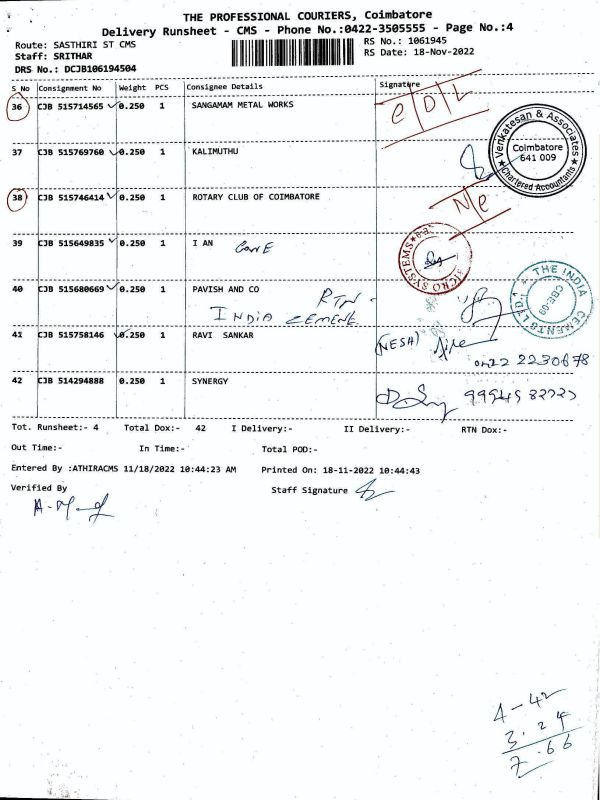 THE PROFESSIONAL COURIERS, Coimbatore
Delivery Runsheet - CMS - Phone No.:0422-3505555 - Page No.:4
Route: SASTHIRI ST CMS
RS No.: 1061945
Staff: SRITHAR
RS Date: 18-Nov-2022
DRS No.: DCJB106194504
S No Consignment No Weight PCS Consignee Details Signature
36 CJB 515714565 0.250 1 SANGAMAM METAL WORKS
Venkatesan & Associates
Coimbatore
641 009
Chartered Accountants
37 CJB 515769760 0.250 1 KALIMUTHU
38 CJB 515746414 0.250 1 ROTARY CLUB OF COIMBATORE N/C
39 CJB 515649835 0.250 1 I AN
MICRO SYSTEMS
40 CJB 515680669 0.250 1 PAVISH AND CO RTN -
INDIA CEMENT
THE INDIA CEMENTS LTD.
CBE-09
41 CJB 515758146 0.250 1 RAVI SANKAR
0422 2230678
42 CJB 514294888 0.250 1 SYNERGY
Tot. Runsheet:- 4 Total Dox:- 42 I Delivery:- II Delivery:- RTN Dox:-
Out Time:- In Time:- Total POD:-
Entered By :ATHIRACMS 11/18/2022 10:44:23 AM Printed On: 18-11-2022 10:44:43
Verified By Staff Signature
4-42
3.24
7.66